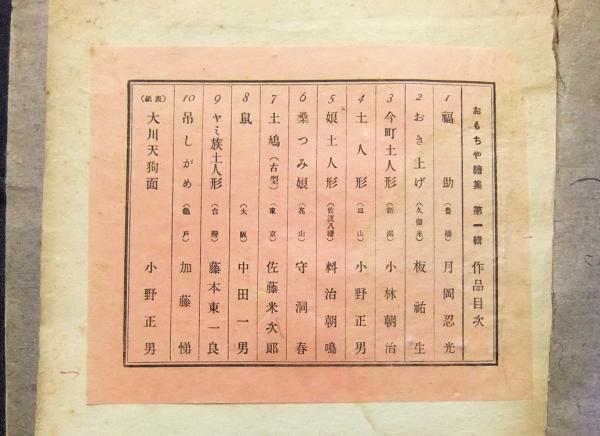 おもちや繪集 第一輯 作品目次
1 福助（豊橋） 月岡忍光
2 おき上げ（久留米） 板祐生
3 今町土人形（新潟） 小林朝治
4 土人形 小野正男
5 娘土人形（佐渡八幡） 料治朝鳴
6 桑つみ娘（高山） 守洞春
7 土鳩（古型）（東京） 佐藤米次郎
8 鼠（大阪） 中田一男
9 ヤミ族土人形（台灣） 藤本東一良
10 吊しがめ（龜戸） 加藤悌
（表紙） 大川天狗面 小野正男